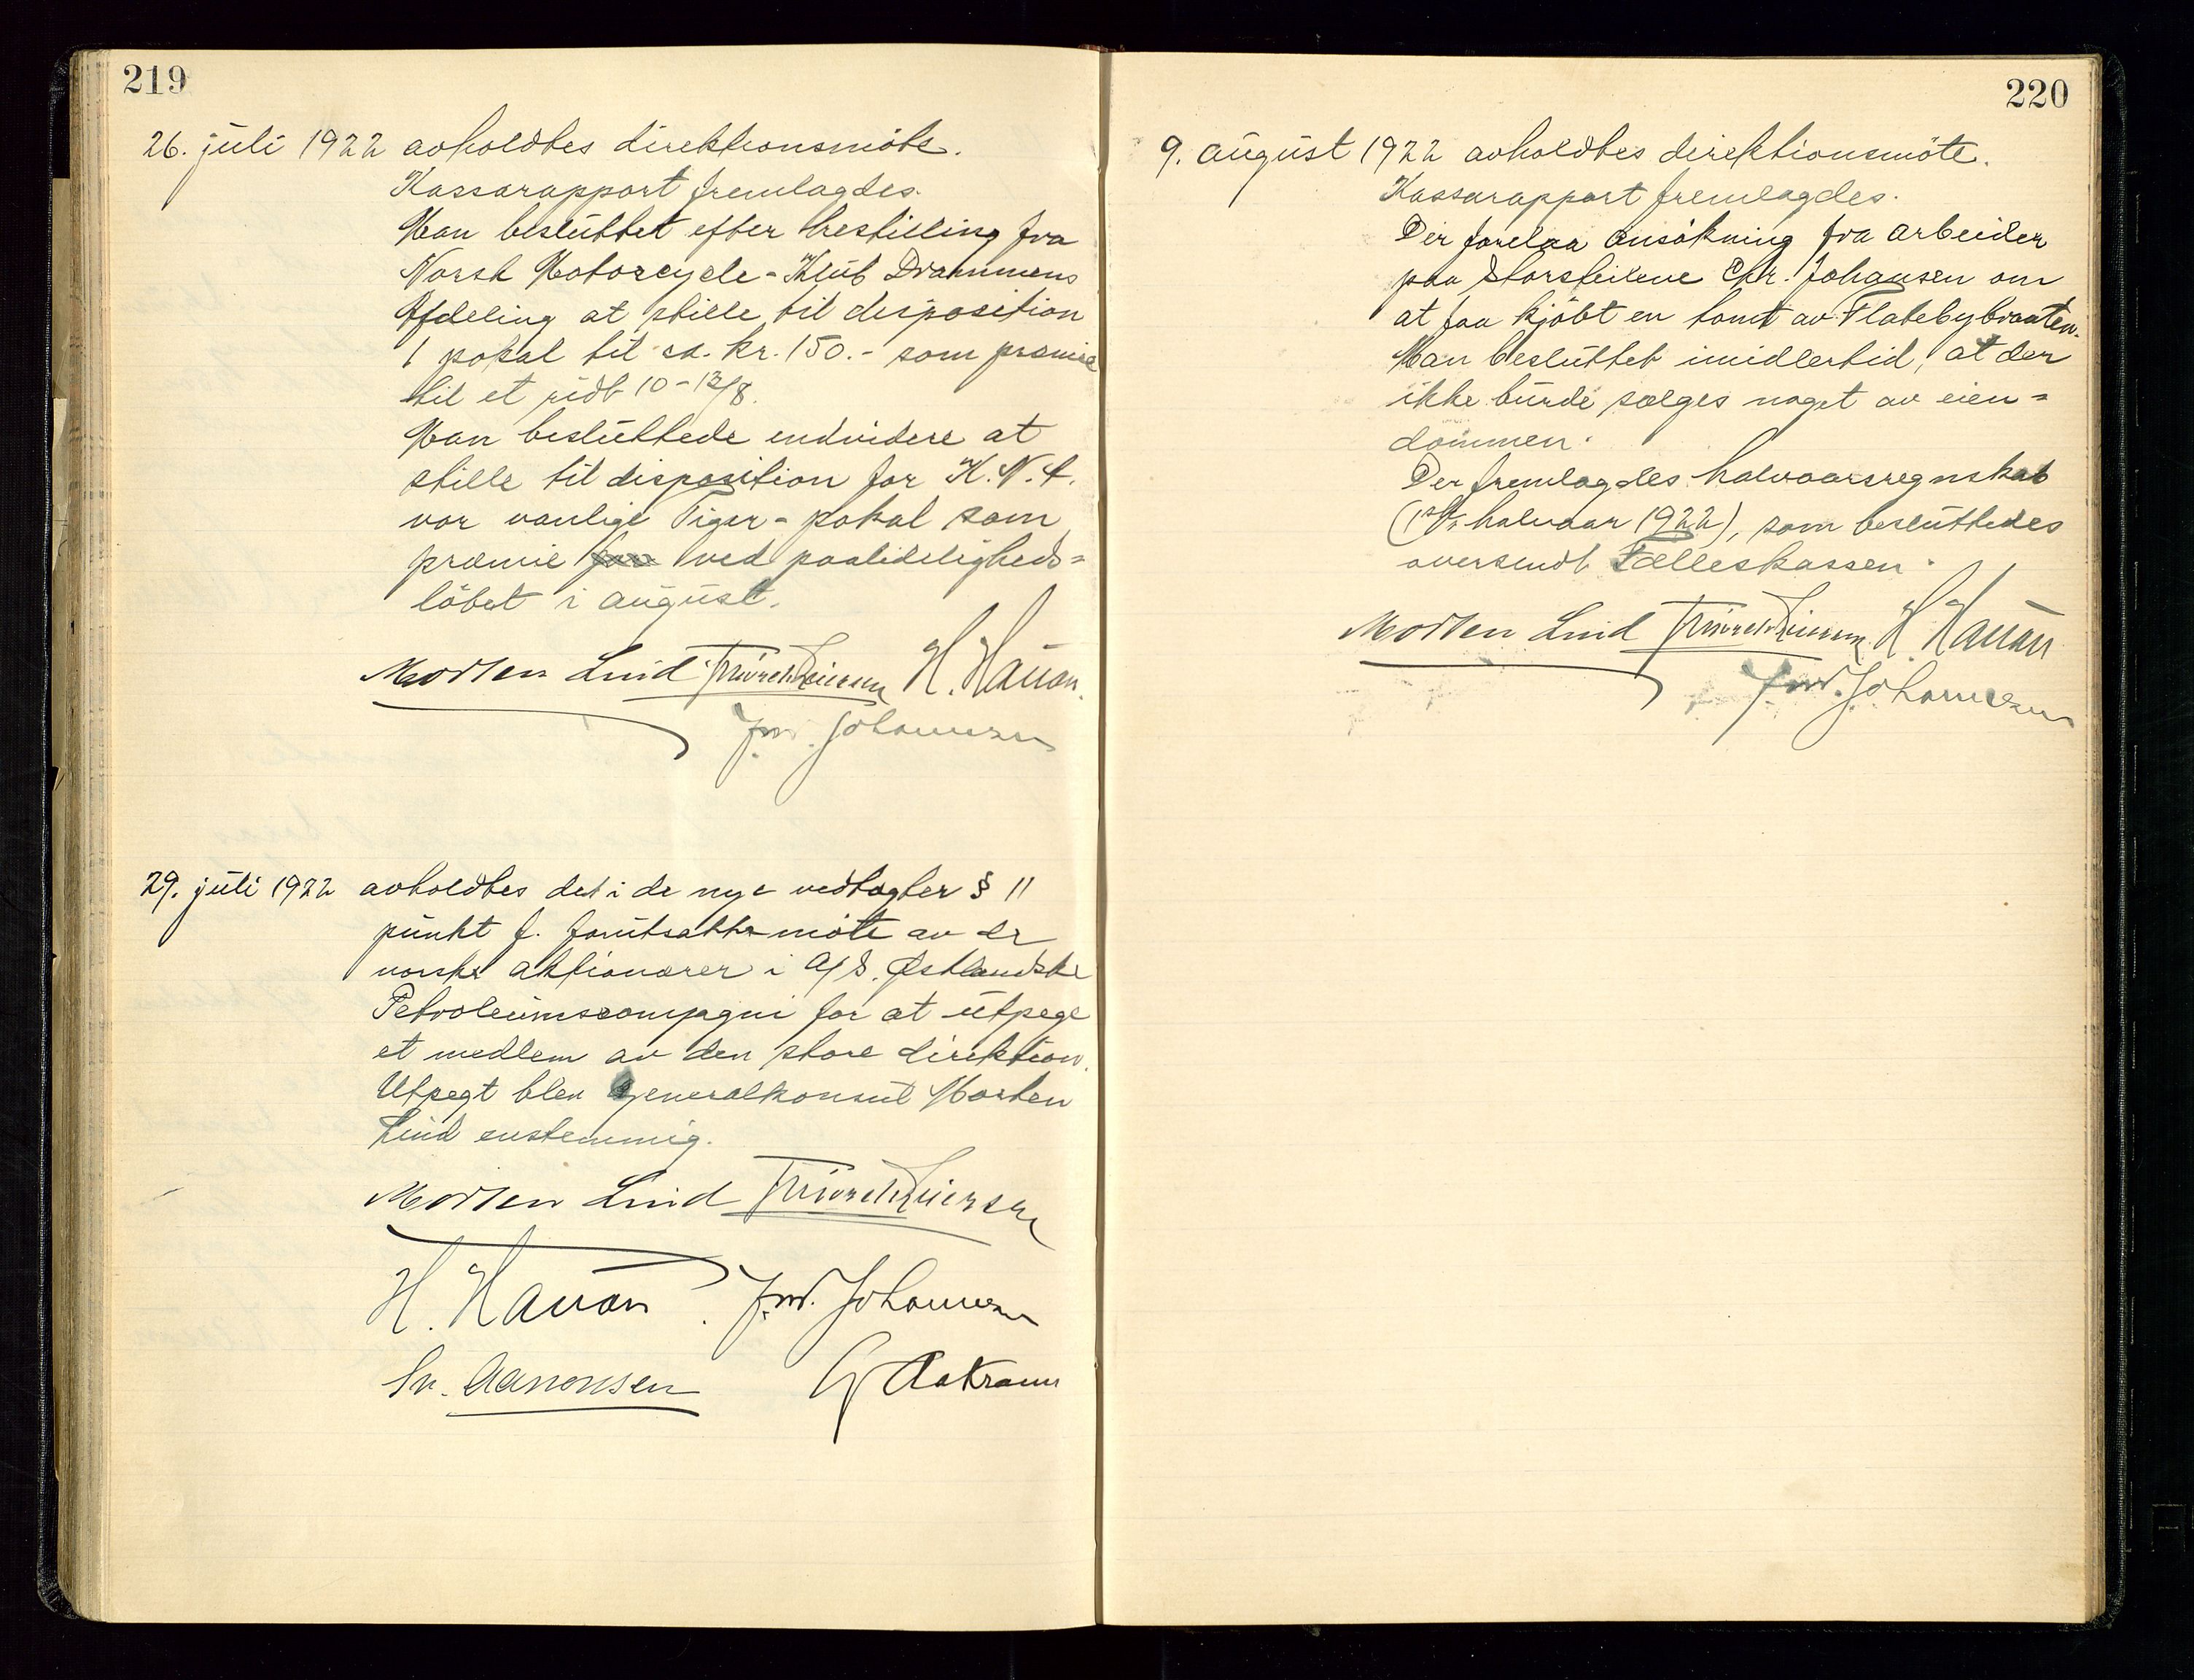 219
26. juli 1922 avholdtes direktionsmöte.
Kassarapport fremlagdes.
Man besluttet efter bestilling fra
Norsk Motorcycle-Klub Drammens
Afdeling at stille til disposition
1 pokal til ca. kr. 150.- som præmie
til et ridt 10-12/8.
Man besluttede endvidere at
stille til disposition for K.N.A.
vor vanlige Tiger-pokal som
præmie for ved paalideligheds=
löbet i august.
Morten Lind H. Hauan
Fred. Johannesen
29. juli 1922 avholdtes det i de nye vedtagter § 11
punkt f. forutsatte möte av de
norske aktionærer i A/S. Østlandske
Petroleumscompagni for at utpege
et medlem av den store direktion.
Utpegt blev Generalkonsul Morten
Lind enstemmig.
Morten Lind
H. Hauan Fred. Johannesen
Sn. Aanonsen
220
9. august 1922 avholdtes direktionsmöte.
Kassarapport fremlagdes.
Der forelaa ansökning fra arbeider
paa Storsteilene Chr. Johansen om
at faa kjöbt en tomt av Flatebybraaten.
Man besluttet imidlertid, at der
ikke burde sælges noget av eien=
dommen.
Der fremlagdes halvaarsregnskab
(1ste halvaar 1922), som besluttedes
oversendt Fælleskassen.
Morten Lind H. Hauan
Fred. Johannesen